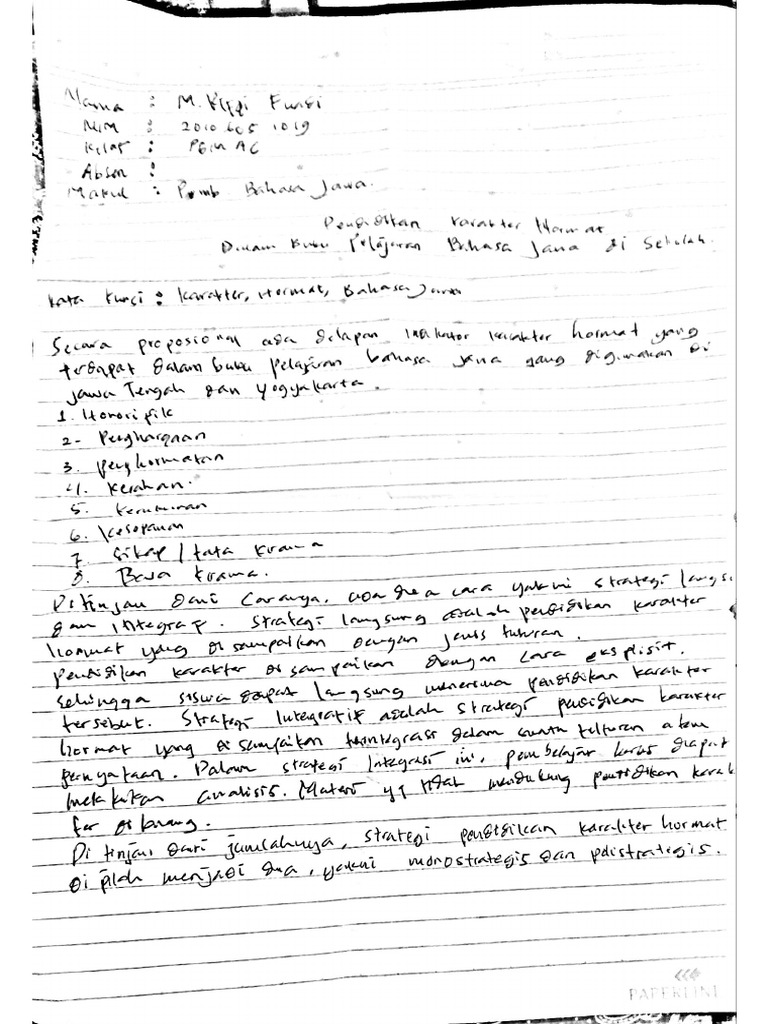 Nama : M. Rifqi Fauzi
NIM : 2010 605 1019
Kelas : PGMI AC
Absen :
Makul : Pemb Bahasa Jawa.
Pendidikan Karakter Hormat
Dalam Buku Pelajaran Bahasa Jawa di Sekolah.
Kata Kunci : Karakter, Hormat, Bahasa Jawa
Secara proposional ada delapan indikator karakter hormat yang
terdapat dalam buku pelajaran bahasa jawa yang digunakan di
Jawa Tengah dan Yogyakarta.
1. Honorifik
2- Penghargaan
3. penghormatan
4. Kerahan.
5. Kerukunan
6. Kesopanan
7. Sikap / tata krama
8. Basa krama.
Ditinjau dari Caranya, ada dua cara yakni strategi langsu
dan Integrap. Strategi langsung adalah pendidikan karakter
hormat yang disampaikan dengan jenis tuturan.
pendidikan karakter disampaikan dengan cara eksplisit.
sehingga siswa dapat langsung menerima pendidikan karakter
tersebut. Strategi Integratif adalah strategi pendidikan karakter
hormat yang disampaikan terintegrasi dalam suatu tuturan atau
pernyataan. Dalam strategi Integrasi ini, pembelajar harus dapat
melakukan analisis. Materi yg tidak mendukung pendidikan karak
ter dibuang.
Di tinjau dari jumlahnya, strategi pendidikan karakter hormat
di pilah menjadi dua, yakni monostrategis dan polistrategis.
PAPERLINE